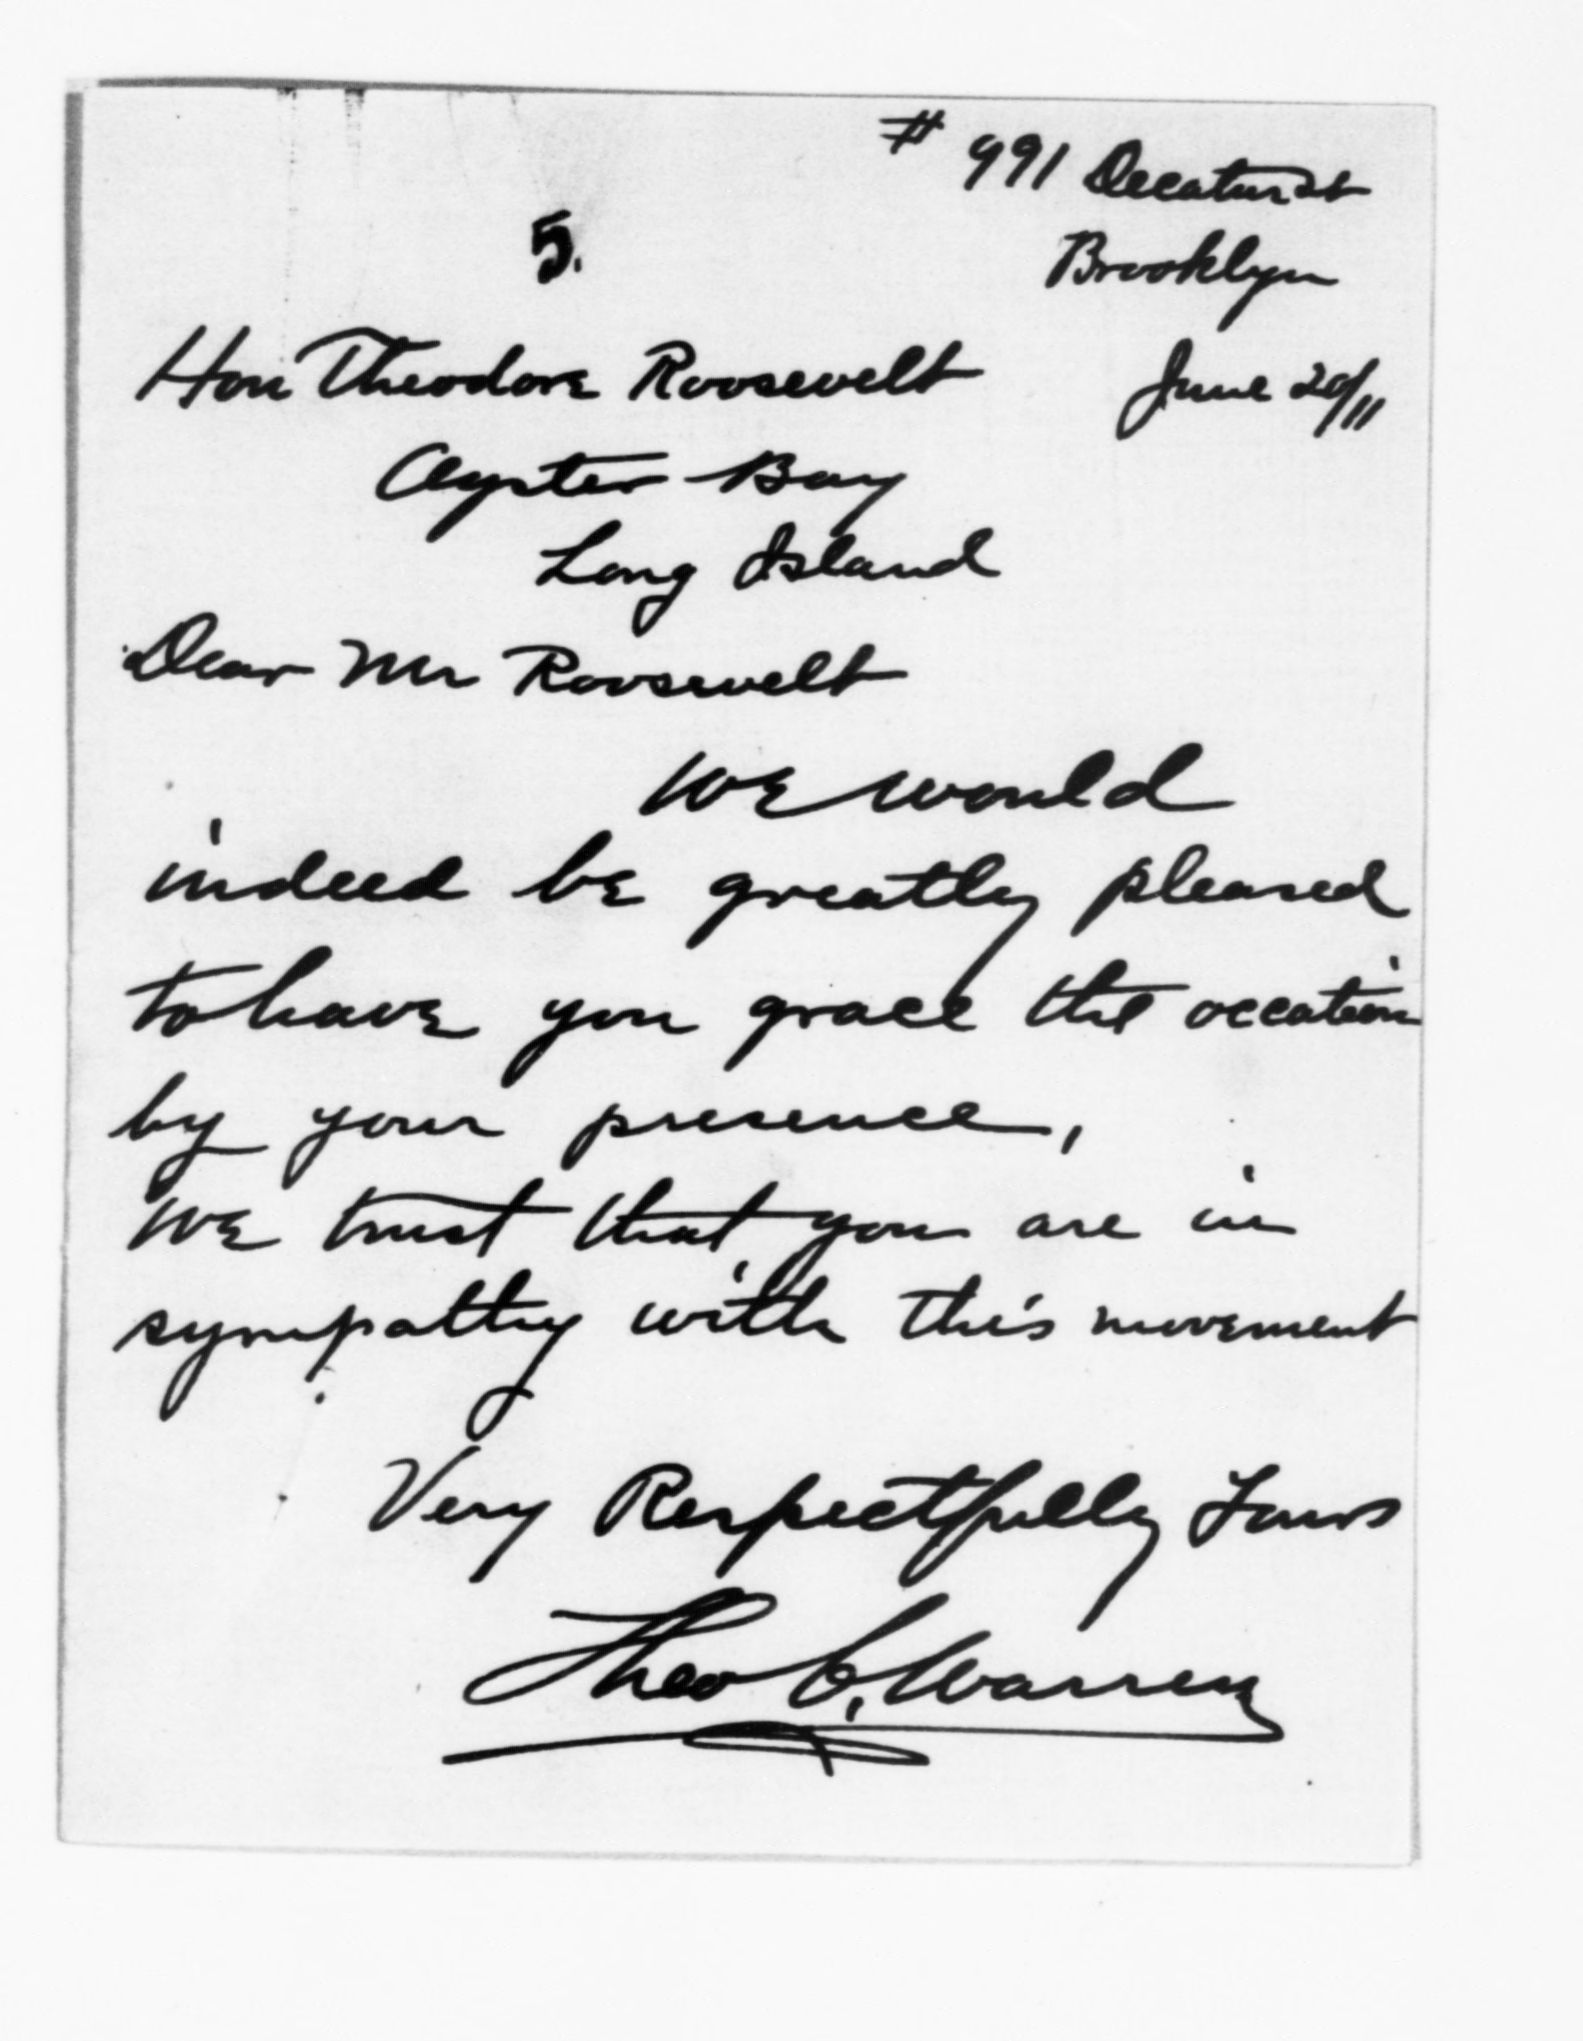 # 991 Decatur St
Brooklyn
5.
Hon Theodore Roosevelt June 20/11
Oyster Bay
Long Island
Dear Mr Roosevelt
We would
indeed be greatly pleased
to have you grace the occation
by your presence,
We trust that you are in
sympathy with this movement
Very Respectfully Yours
Theo C. Warren